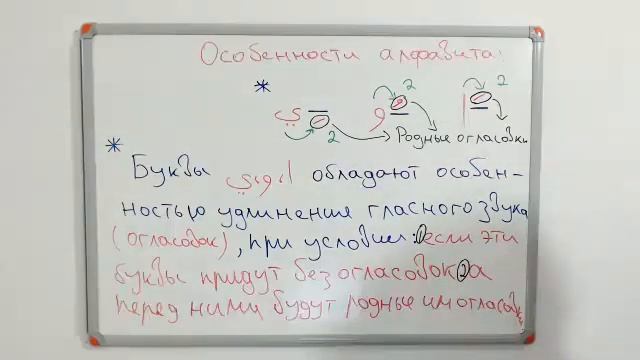 Особенности алфавита:
* ي و ا
2 2 2
Родные огласовки
* Буквы ا، و، ي обладают особен-
ностью удлинения гласного звука
(огласовок), при условии: ① если эти
буквы придут без огласовок ② а
перед ними будут родные им огласовки